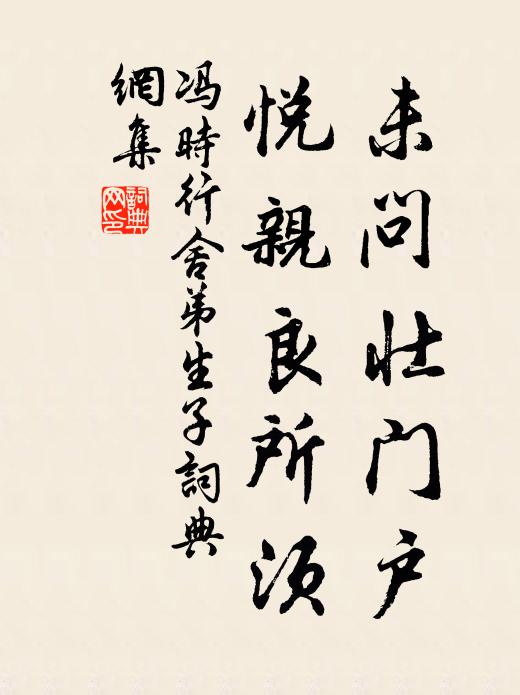 未问壮门户
悦親良所须
冯時行舍弟生子詞典
網集
詞典
网印